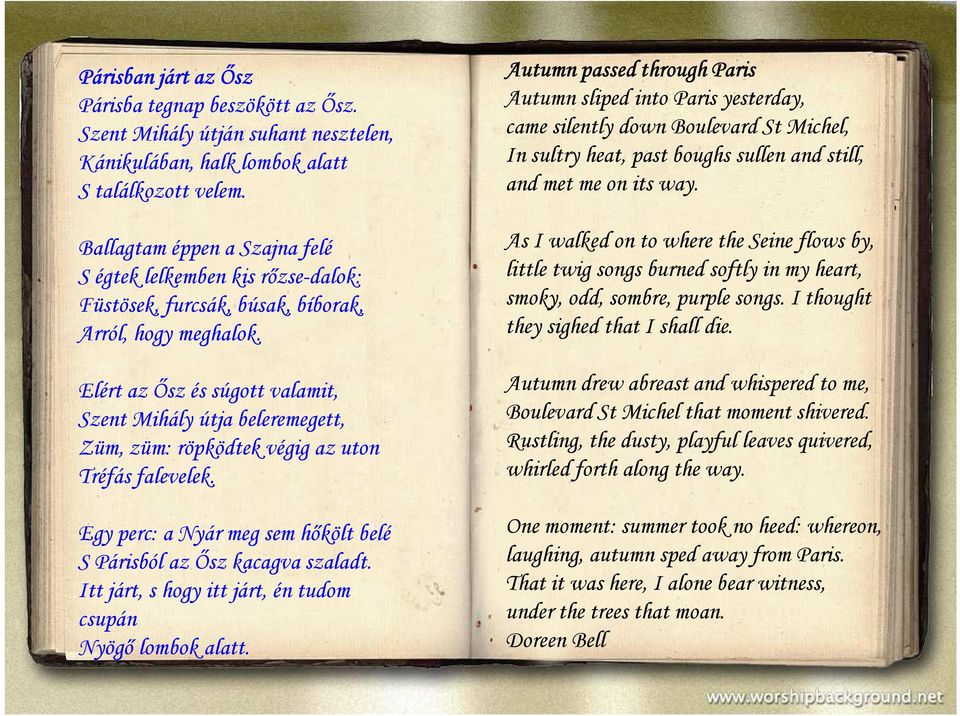 Párisban járt az Ősz
Párisba tegnap beszökött az Ősz.
Szent Mihály útján suhant nesztelen,
Kánikulában, halk lombok alatt
S találkozott velem.
Ballagtam éppen a Szajna felé
S égtek lelkemben kis rőzse-dalok:
Füstösek, furcsák, búsak, bíborak,
Arról, hogy meghalok.
Elért az Ősz és súgott valamit,
Szent Mihály útja beleremegett,
Züm, züm: röpködtek végig az uton
Tréfás falevelek.
Egy perc: a Nyár meg sem hőkölt belé
S Párisból az Ősz kacagva szaladt.
Itt járt, s hogy itt járt, én tudom
csupán
Nyögő lombok alatt.
Autumn passed through Paris
Autumn sliped into Paris yesterday,
came silently down Boulevard St Michel,
In sultry heat, past boughs sullen and still,
and met me on its way.
As I walked on to where the Seine flows by,
little twig songs burned softly in my heart,
smoky, odd, sombre, purple songs. I thought
they sighed that I shall die.
Autumn drew abreast and whispered to me,
Boulevard St Michel that moment shivered.
Rustling, the dusty, playful leaves quivered,
whirled forth along the way.
One moment: summer took no heed: whereon,
laughing, autumn sped away from Paris.
That it was here, I alone bear witness,
under the trees that moan.
Doreen Bell
www.worshipbackground.net